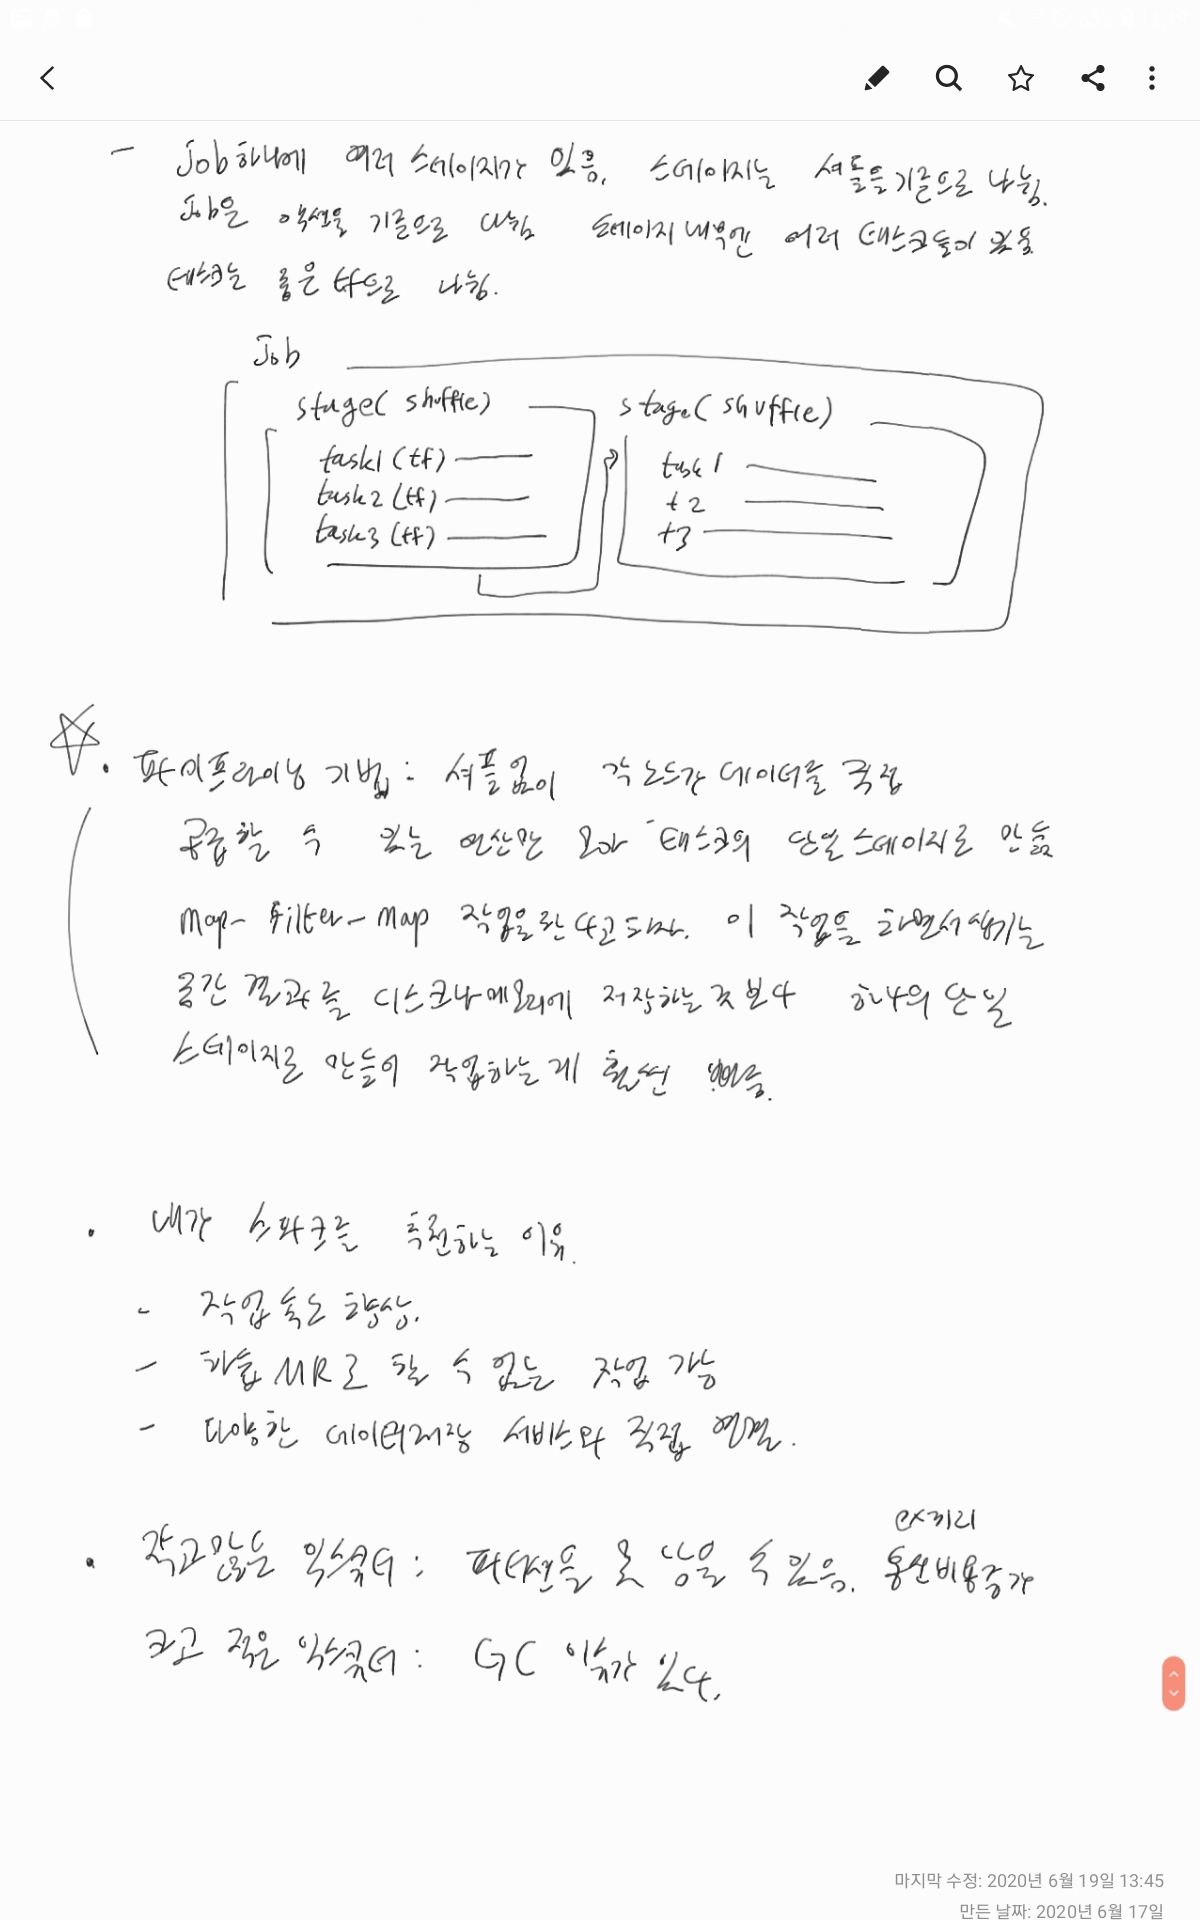 - Job 하나에 여러 스테이지가 있음. 스테이지는 셔플을 기준으로 나뉨.
Job은 액션을 기준으로 나뉨 스테이지 내부엔 여러 태스크들이 있음
태스크는 좁은 tf으로 나뉨.
Job
stage( shuffle) stage( shuffle)
task1 (tf) task 1
task2 (tf) t2
task3 (tf) t3
• 파이프라이닝 기법 : 셔플 없이 각 노드가 데이터를 직접
공급할 수 있는 연산만 모아 태스크의 단일 스테이지로 만듦
Map - Filter - Map 작업을 한다고 하자. 이 작업을 하면서 생기는
중간 결과를 디스크나 메모리에 저장하는 것보다 하나의 단일
스테이지로 만들어 작업하는게 훨씬
• 내가 스파크를 추천하는 이유.
- 작업 속도 향상.
- 하둡 MR로 할 수 없는 작업 가능
- 다양한 데이터저장 서비스와 직접 연결.
ex끼리
• 작고 많은 익스큐터 : 파티션을 못 담을 수 있음. 통신비용증가
크고 적은 익스큐터 : GC 이슈가 있다.
마지막 수정: 2020년 6월 19일 13:45
만든 날짜: 2020년 6월 17일